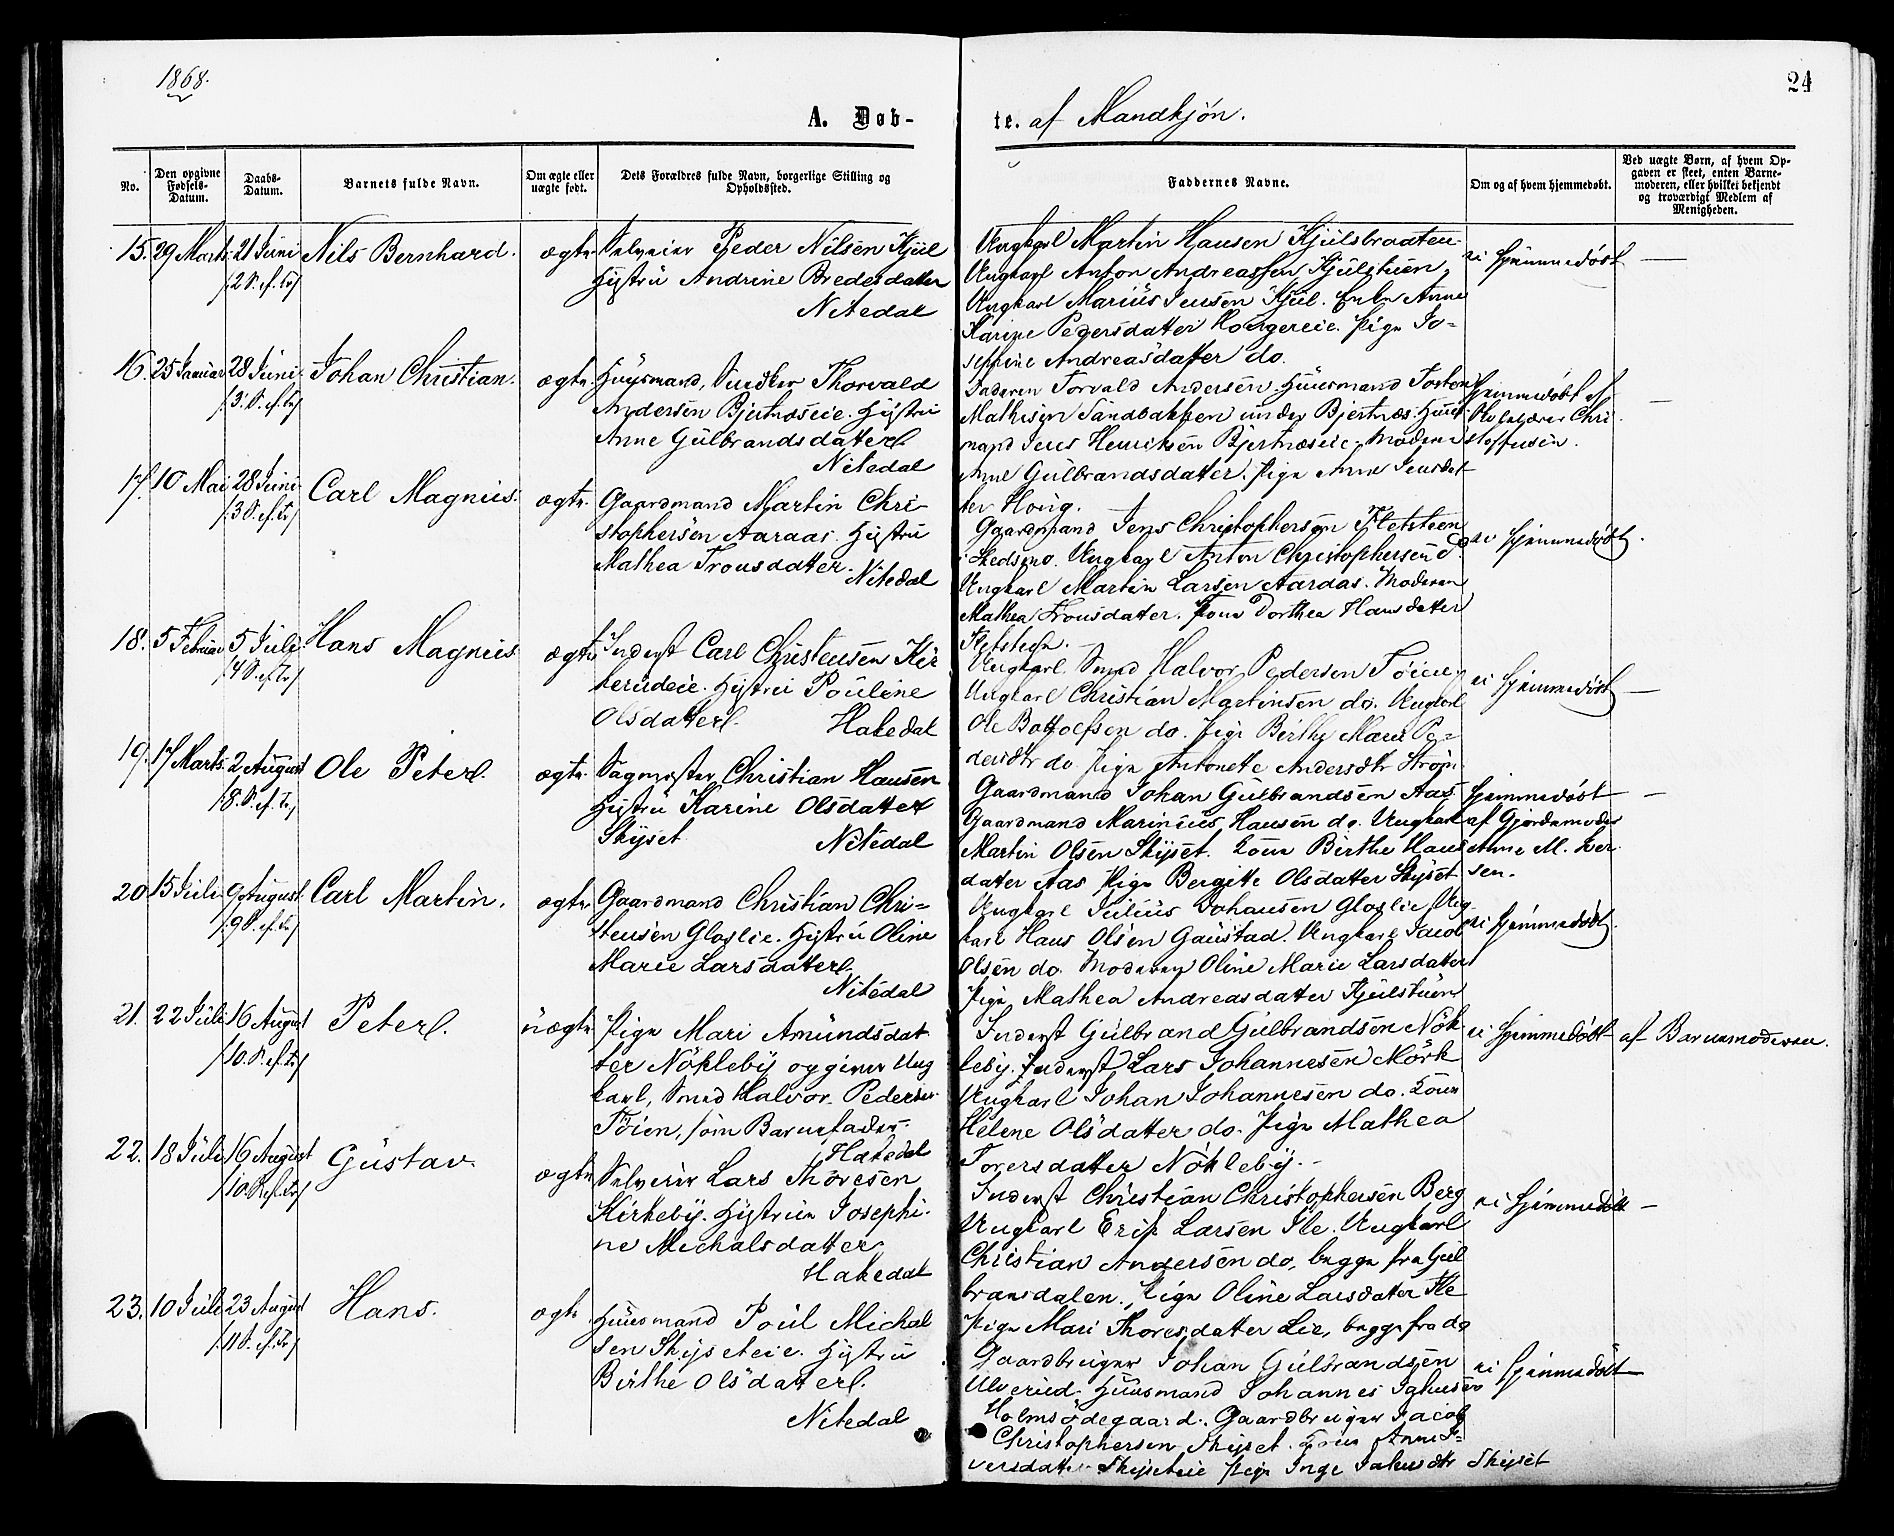 1868.
24
A. Døb-
te. af Mandkjøn.
No.
Den opgivne Fødsels-Datum.
Daabs-Datum.
Barnets fulde Navn.
Om ægte eller uægte født.
Dets Forældres fulde Navn, borgerlige Stilling og Opholdssted.
Faddernes Navne.
Om og af hvem hjemmedøbt.
Ved uægte Børn, af hvem Opgaven er skeet, enten Barnemoderen, eller hvilket bekjendt og troværdigt Medlem af Menigheden.
15. 29 Marts 21 Juni Nils Bernhard. ægte
/2 S. ef. Tr/
Selveier Peder Nilsen Kjül
Hustru Andrine Bredesdatter
Nitedal
Ungkarl Martin Hansen Kjülsbraaten
Ungkarl Anton Andreassen Kjülstuen,
Ungkarl Marius Jensen Kjül. Enke Anne
Karine Pedersdatter Pige Jo-
sephine Andreasdatter do.
ei hjemmedøbt —
16. 25 Januar 28 Juni Johan Christian. ægte
/3. S. ef. Tr/
Huusmand, Snedker Thorvald
Andersen Bjertnæseie. Hustru
Anne Gulbrandsdatter
Nitedal
Faderen Torvald Andersen. Huusmand Torsten
Mathisen Sandbakken under Bjertnæs. Huus-
mand Jens Henriksen Bjertnæseie, Moderen
Anne Gulbrandsdatter. Pige Anne Jensdat-
ter Houg.
hjemmedøbt af
Skolelærer Chri
stoffersen. —
17. 10 Mai 28 Juni Carl Magnus. ægte
/3 S. ef. Tr/
Gaardmand Martin Chri-
stophersen Aaraas. Hustru
Mathea Tronsdatter.
Nitedal
Gaardmand Jens Christophersen Fletsteen
i Skedsmo. Ungkarl Anton Christophersen do
Ungkarl Martin Larsen Aaraas. Moderen
Mathea Tronsdatter. Kone Dorthea Hansdatter
Fletsteen.
ei hjemmedøbt.
18. 5 Februar 5 Juli Hans Magnus ægte
/4 S. ef. Tr/
Inderst Carl Christensen Kir
kerudeie. Hustru Pouline
Olsdatter.
Hakedal
Ungkarl Smed Halvor Pedersen Tøien,
Ungkarl Christian Martinsen do. Ungkarl
Ole Bottolfsen do. Pige Birthe Marie Pe-
dersdtr do Pige Antonete Andersdtr Strøm
ei hjemmedøbt —
19. 17 Marts. 2 August Ole Peter. ægte.
/8. S. ef. Tr/
Sagmester Christian Hansen
Hustru Karine Olsdatter
Skyset
Nitedal
Gaardmand Johan Gulbrandsen Aas
Gaardmand Marinius Hansen do. Ungkarl
Martin Olsen Skyset. Kone Birthe Hans
datter Aas Pige Bergitte Olsdatter Skyset
hjemmedøbt —
af Gjordemoder
Anne M. Iver-
sen.
20 15 Juli 9 August. Carl Martin. ægte
/9 S. ef. Tr/
Gaardmand Christian Chri-
stensen Gloslie. Hustru Oline
Marie Larsdatter.
Nitedal
Ungkarl Julius Johansen Gloslie, Ung-
karl Hans Olsen Gaustad. Ungkarl Jacob
Olsen do. Moderen Oline Marie Larsdatter
Pige Mathea Andreasdatter Kjülstuen
ei hjemmedøbt.
21. 22 Juli 16 August Peter. uægte
/10. S. ef. Tr/
Pige Mari Amundsdat
ter Nökleby opgiver Ung
karl, Smed Halvor Pedersen
Tøien, som Barnefader.
Hakedal
Inderst Gulbrand Gulbrandsen Nök
leby. Inderst Lars Johannesen Mörk
Ungkarl Johan Johannesen do. Kone
Helene Olsdatter do. Pige Mathea
Toversdatter Nökleby.
ei hjemmedøbt
af Barnemoderen.
22. 18 Juli 16 August Gustav. ægte
/10 S. ef. Tr/
Selveier Lars Thoresen
Kirkeby. Hustrue Josephi-
ne Michalsdatter
Hakedal
Inderst Christian Christophersen Berg
Ungkarl Erik Larsen Ile. Ungkarl
Christian Andersen do, begge fra Gul
bransdalen. Pige Oline Larsdatter Ile
Pige Mari Thoresdatter Lie, begge fra do
ei hjemmedøbt —
23. 10 Juli 23 August Hans. ægte.
/11 S. ef. Tr/
Huusmand Poul Michal
sen Skyseteie. Hustru
Birthe Olsdatter.
Nitedal
Gaardbruger Johan Gulbrandsen
Ulverud. Huusmand Johannes
Holmsödegaard. Gaardbruger Jacob
Christophersen Skyset. Kone Anne I-
versdatter Skyseteie Pige Inge Skyset
ei hjemmedøbt